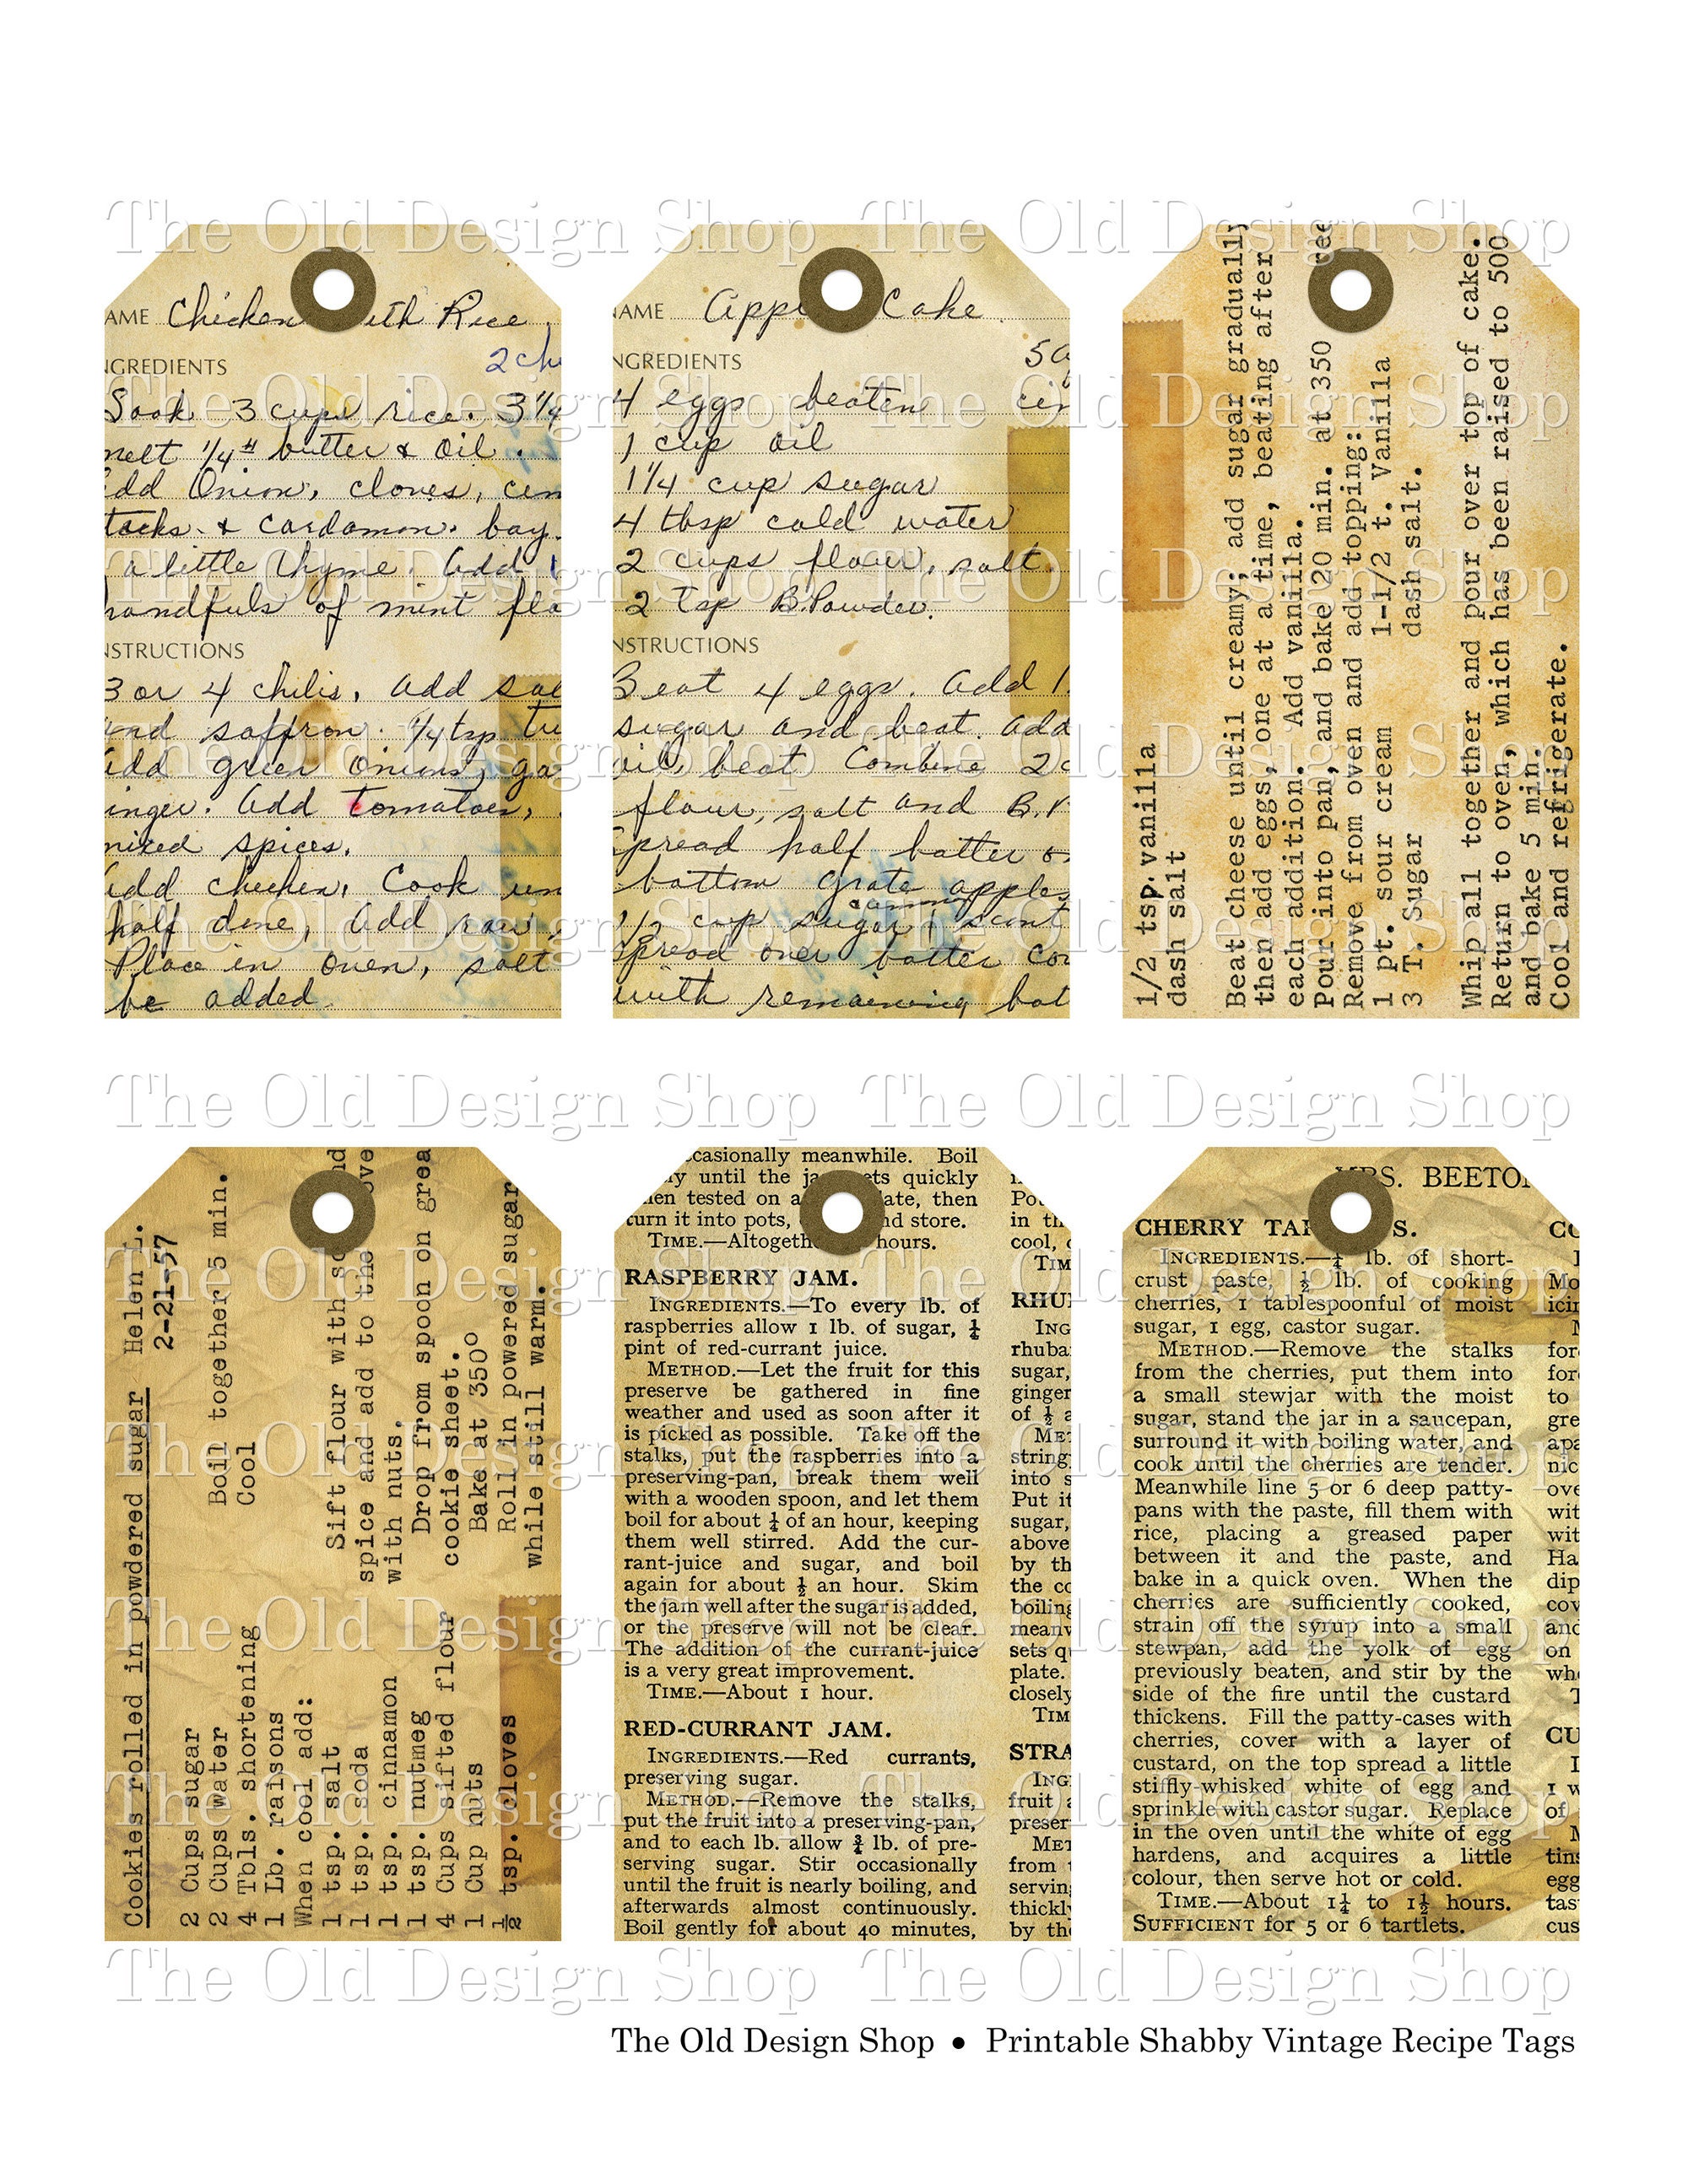 The Old Design Shop The Old Design Shop
AME Chicken ith Rice
NGREDIENTS
2 ch
Soak 3 cups rice. 3 1/4
melt 1/4 # butter & oil.
add Onion, cloves, cin
& cardamon. bay.
a little thyme. Add 1
handfuls of mint fla
NSTRUCTIONS
3 or 4 chilis, add sal
and saffron. 1/4 tsp tu
add green onions, ga
inger. Add tomatoes,
mixed spices.
add chicken, Cook un
half done, add raw
Place in oven, salt
be added
AME Appl Cake
NGREDIENTS
4 eggs beaten cin
1 cup oil
1 1/4 cup sugar
4 tbsp cold water
2 cups flour, salt.
2 Tsp B.Powder.
NSTRUCTIONS
Beat 4 eggs. Add 1
sugar and beat. Add
oil, beat Combine 2 c
flour, salt and B.P
Spread half batter on
bottom grate apples
1/2 cup sugar
Spread over batter co
with remaining bat
1/2 tsp. vanilla
dash salt
Beat cheese until creamy; add sugar gradually
then add eggs, one at a time, beating after
each addition. Add vanilla.
Pour into pan, and bake 20 min. at 350
Remove from oven and add topping:
1 pt. sour cream 1-1/2 t. vanilla
3 T. Sugar dash salt.
Whip all together and pour over top of cake.
Return to oven, which has been raised to 500
and bake 5 min.
Cool and refrigerate.
The Old Design Shop The Old Design Shop
Cookies rolled in powdered sugar Helen L.
2-21-57
2 Cups sugar
2 Cups water
4 Tbls. shortening
1 Lb. raisons
When cool add:
1 tsp. salt
1 tsp. soda
1 tsp. cinnamon
1 tsp. nutmeg
4 Cups sifted flour
1 Cup nuts
½ tsp. cloves
Boil together 5 min.
Cool
Sift flour with so nd
spice and add to the ove
with nuts.
Drop from spoon on grea
cookie sheet.
Bake at 350°
Roll in powered sugar
while still warm.
casionally meanwhile. Boil
y until the ja ets quickly
en tested on a ate, then
turn it into pots, nd store.
TIME.—Altogeth hours.
RASPBERRY JAM.
INGREDIENTS.—To every lb. of
raspberries allow 1 lb. of sugar, ¼
pint of red-currant juice.
METHOD.—Let the fruit for this
preserve be gathered in fine
weather and used as soon after it
is picked as possible. Take off the
stalks, put the raspberries into a
preserving-pan, break them well
with a wooden spoon, and let them
boil for about ¼ of an hour, keeping
them well stirred. Add the cur-
rant-juice and sugar, and boil
again for about ½ an hour. Skim
the jam well after the sugar is added,
or the preserve will not be clear.
The addition of the currant-juice
is a very great improvement.
TIME.—About 1 hour.
RED-CURRANT JAM.
INGREDIENTS.—Red currants,
preserving sugar.
METHOD.—Remove the stalks,
put the fruit into a preserving-pan,
and to each lb. allow ¾ lb. of pre-
serving sugar. Stir occasionally
until the fruit is nearly boiling, and
afterwards almost continuously.
Boil gently for about 40 minutes,
in th
cool,
TIM
RHU
ING
rhuba
sugar,
ginger
of ½ a
MET
string
into s
Put it
sugar,
above
by th
the co
boiling
meanw
sets qu
plate.
closely
TIM
STRA
ING
fruit a
preser
MET
from
serving
thickl
by the
RS. BEETO
CHERRY TAR S.
INGREDIENTS.—¼ lb. of short-
crust paste, ½ lb. of cooking
cherries, 1 tablespoonful of moist
sugar, 1 egg, castor sugar.
METHOD.—Remove the stalks
from the cherries, put them into
a small stewjar with the moist
sugar, stand the jar in a saucepan,
surround it with boiling water, and
cook until the cherries are tender.
Meanwhile line 5 or 6 deep patty-
pans with the paste, fill them with
rice, placing a greased paper
between it and the paste, and
bake in a quick oven. When the
cherries are sufficiently cooked,
strain off the syrup into a small
stewpan, add the yolk of egg
previously beaten, and stir by the
side of the fire until the custard
thickens. Fill the patty-cases with
cherries, cover with a layer of
custard, on the top spread a little
stiffly-whisked white of egg and
sprinkle with castor sugar. Replace
in the oven until the white of egg
hardens, and acquires a little
colour, then serve hot or cold.
TIME.—About 1¼ to 1½ hours.
SUFFICIENT for 5 or 6 tartlets.
Mo
icin
for
for
to
gre
apa
nic
ove
wit
wit
Ha
dip
cov
and
on
whe
CU
1 w
of
tins
egg
tas
cus
The Old Design Shop The Old Design Shop
The Old Design Shop • Printable Shabby Vintage Recipe Tags